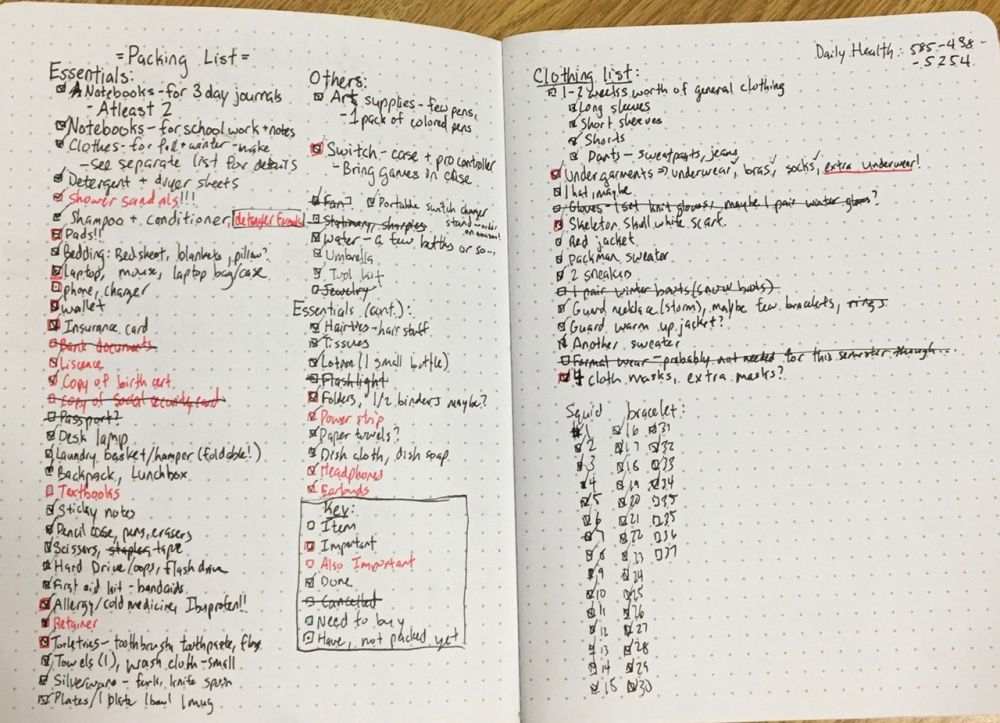 =Packing List=
Essentials:
Notebooks - for 3 day journals
- Atleast 2
Notebooks - for school work + notes
Clothes - for fall + winter - make
- see separate list for details
Detergent + dryer sheets
Shower sandals!!!
Shampoo + conditioner, detangler
Pads!!
Bedding: Bedsheet, blankets, pillow?
Laptop, mouse, laptop bag/case
phone, charger
Wallet
Insurance card
Bank documents
Liscence
Copy of birth cert.
Copy of Social security card
Passport?
Desk lamp
Laundry basket/hamper (foldable!)
Backpack, Lunchbox
Textbooks
Sticky notes
Pencil case, pens, erasers
Scissors, stapler, tape
Hard Drive/oops, flash drive
First aid kit - bandaids
Allergy/cold medicine, Ibuprofen!!
Retainer
Toiletries - toothbrush, toothpaste, floss
Towels (1), wash cloth - small
Silverware - fork, knife, spoon
Plates/1 plate 1 bowl 1 mug
Others:
Art supplies - few pens,
- 1 pack of colored pens
Switch - case + pro controller
- Bring games in case
Fan?
Portable switch charger
stand - order
on amazon!
Stationary, sharpies
Water - a few bottles or so...
Umbrella
Tool kit
Jewelry
Essentials (cont.):
Hairties - hair stuff
Tissues
Lotion (1 small bottle)
Flashlight
Folders, 1/2 binders maybe?
Power strip
Paper towels?
Dish cloth, dish soap
Headphones
Earbuds
Key:
Item
Important
Also Important
Done
Cancelled
Need to buy
Have, not packed yet
Daily Health: 585-438-
-5254
Clothing list:
1-2 weeks worth of general clothing
Long sleeves
Short sleeves
Shorts
Pants - sweatpants, jeans
Undergarments => underwear, bras, socks, extra underwear!
1 hat maybe
Gloves - 1 set knit gloves, maybe 1 pair winter gloves?
Skeleton skull white scarf
Red jacket
Packman sweater
2 sneakers
1 pair winter boots (snow boots)
Guard necklace (storm), maybe few bracelets, rings
Guard warm up jacket?
Another sweater
Formal wear - probably not needed for this semester though...
4 cloth masks, extra masks?
Squid bracelet:
1 16 31
2 17 32
3 18 33
4 19 34
5 20 35
6 21 35
7 22 36
8 23 37
9 24
10 25
11 26
12 27
13 28
14 29
15 30